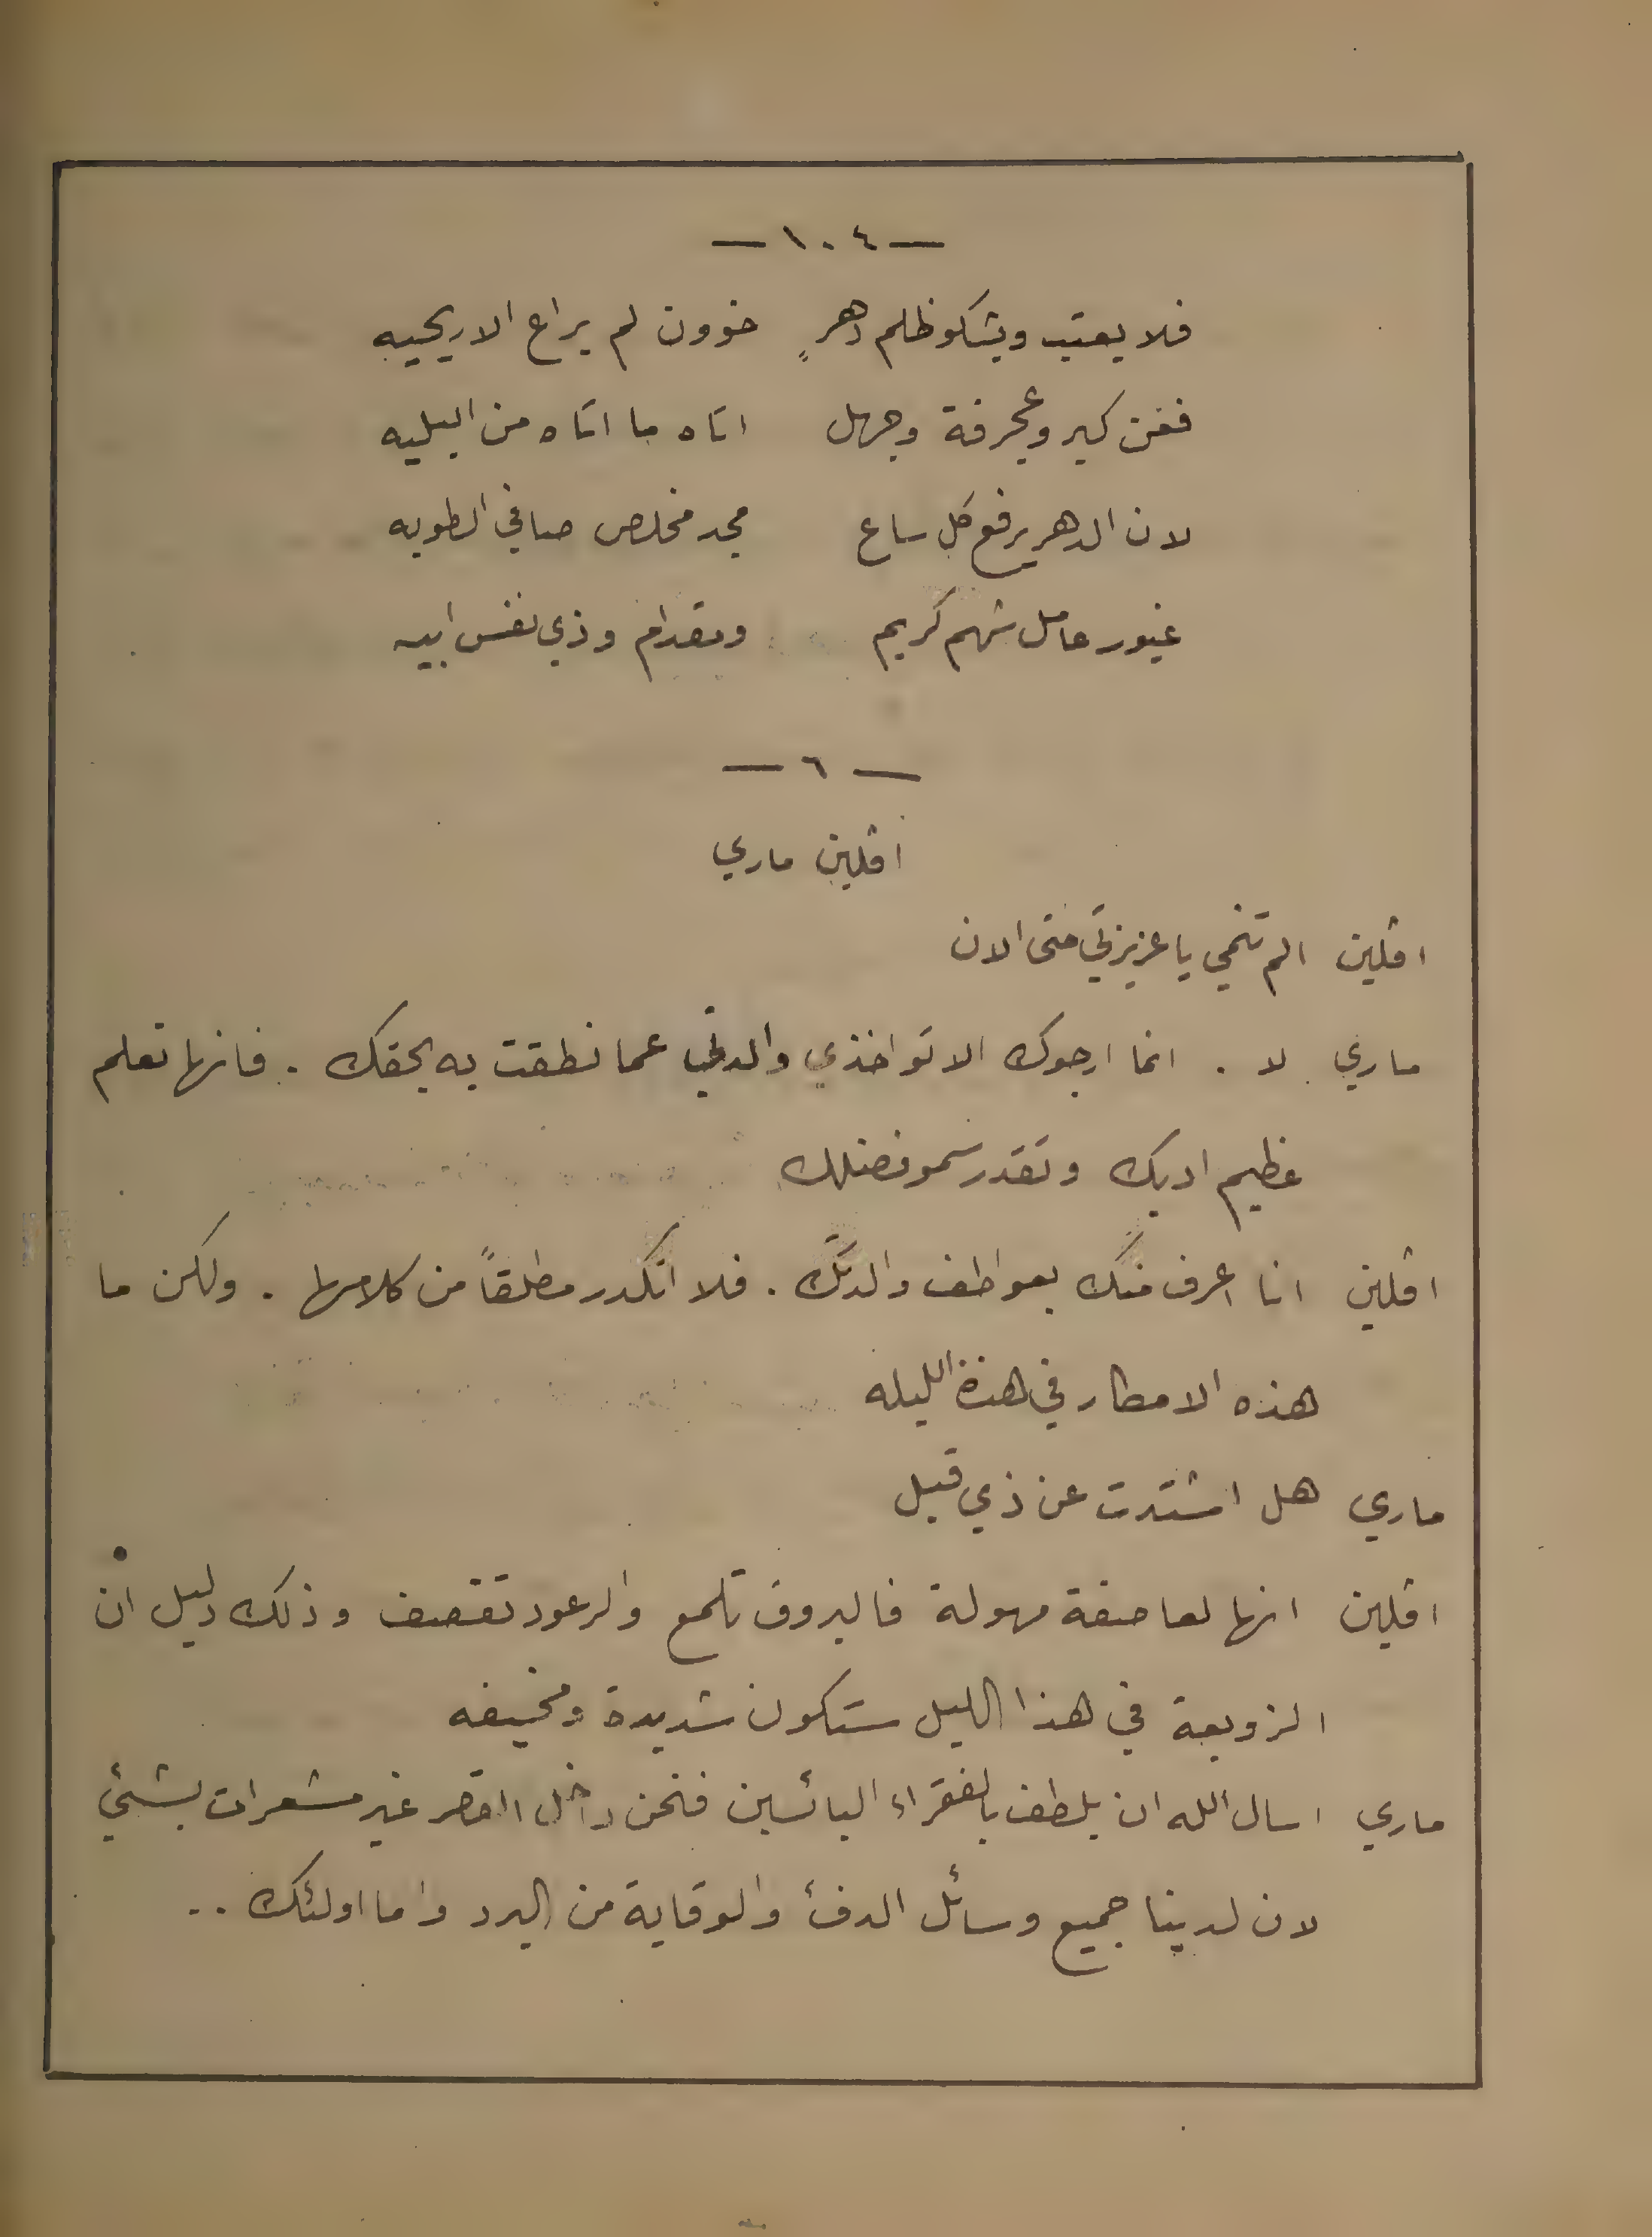 — ١٠٤ —
فلا يعتب ويشكو ظلم دهرٍ خوون لم يراع الاريحيه
فمن كبر وعجرفة وجهل اتاه ما اتاه من البليه
لان الدهر يرفع كل ساع مجد مخلص صافي الطويه
غيور عامل شهم كريم ومقدام وذي نفس ابيه
— ٦ —
اڤلين ماري
اڤلين الم تنمي يا عزيزتي حتى الان
ماري لا . انما ارجوك الا تواخذي والدتي عما نطقت به بحقك . فانها تعلم
عظيم ادبك وتقدر سمو فضلك
اڤلين انا اعرف منك بعواطف والدتك . فلا اتكدر مطلقاً من كلامها . ولكن ما
هذه الامطار في هذة الليله
ماري هل اشتدت عن ذي قبل
اڤلين انها لعاصفة مهولة فالبروق تلمع والرعود تقصف وذلك دليل ان
الزوبعة في هذا الليل ستكون شديدة ومخيفه
ماري اسال الله ان يلطف بالفقراء البائسين فنحن داخل القصر غير مشعرات بشئ
لان لدينا جميع وسائل الدفئ والوقاية من البرد واما اولئك ..